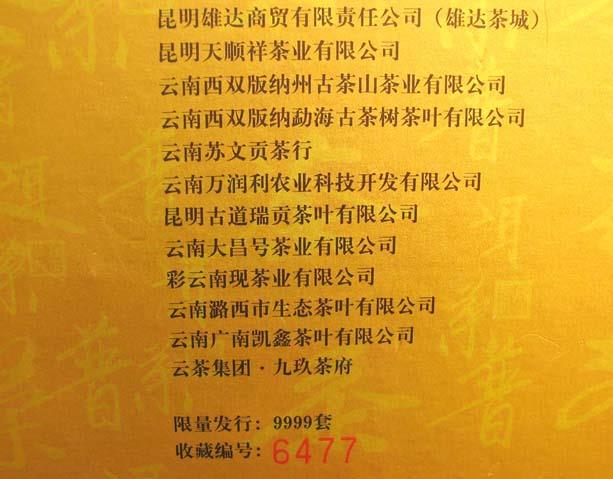 昆明雄达商贸有限责任公司（雄达茶城）
昆明天顺祥茶业有限公司
云南西双版纳州古茶山茶业有限公司
云南西双版纳勐海古茶树茶叶有限公司
云南苏文贡茶行
云南万润利农业科技开发有限公司
昆明古道瑞贡茶叶有限公司
云南大昌号茶业有限公司
彩云南现茶业有限公司
云南潞西市生态茶叶有限公司
云南广南凯鑫茶叶有限公司
云茶集团·九玖茶府
限量发行：9999套
收藏编号：6477